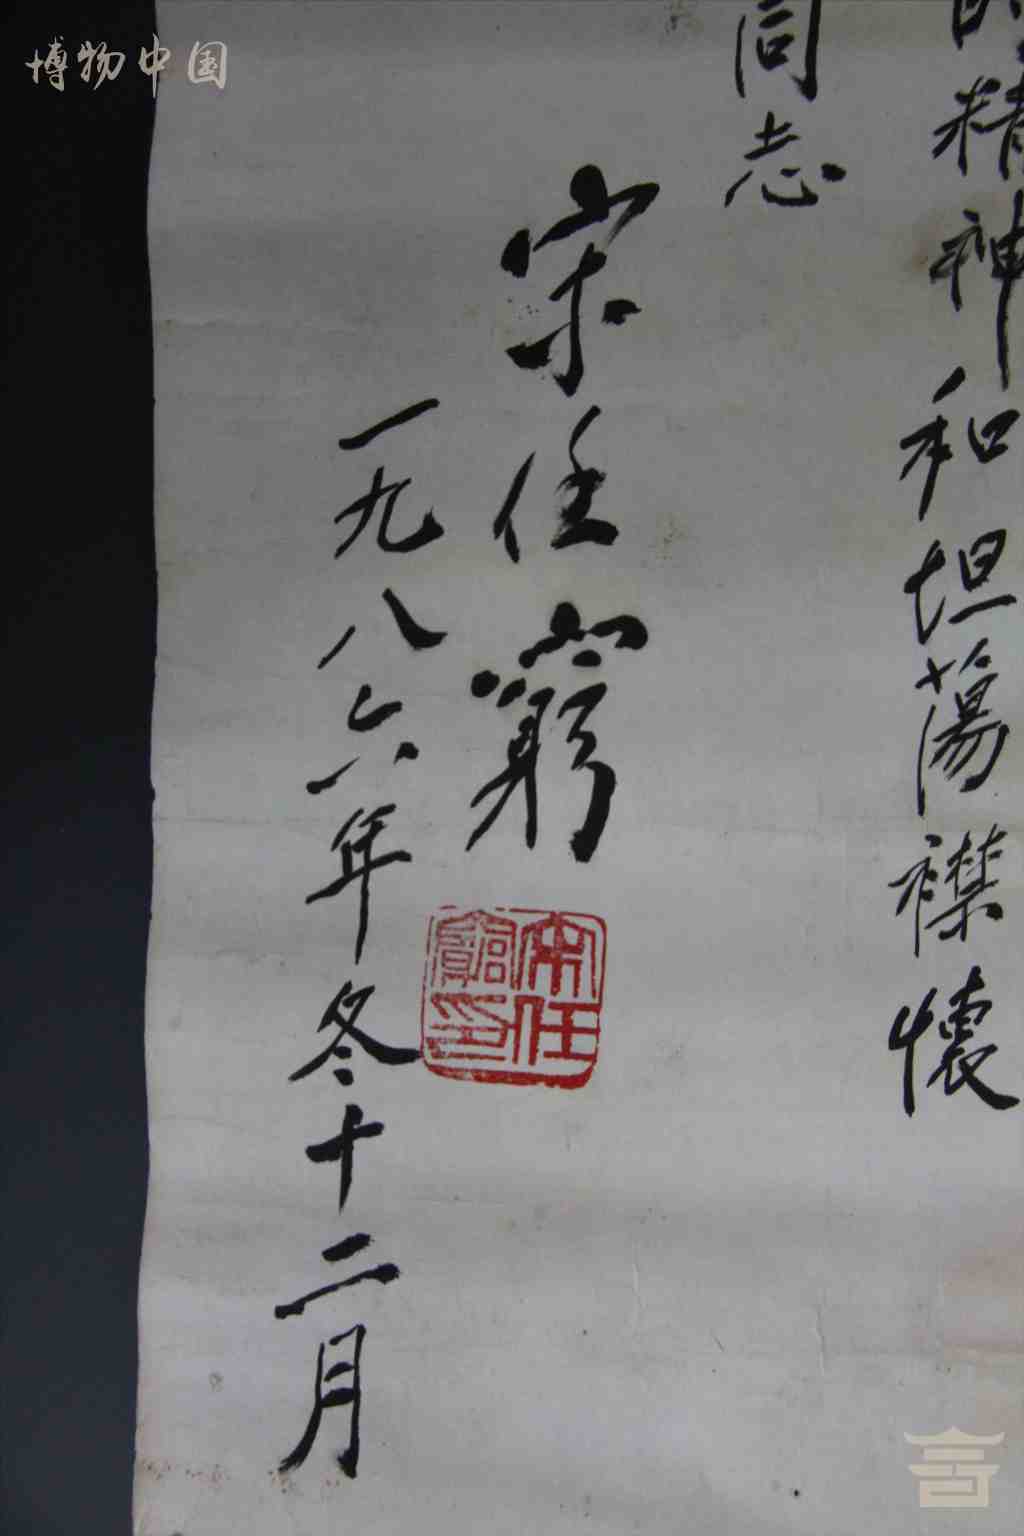 博物中国
的精神和坦蕩襟懷
同志
宋任窮
一九八六年冬十二月
宋任竆印